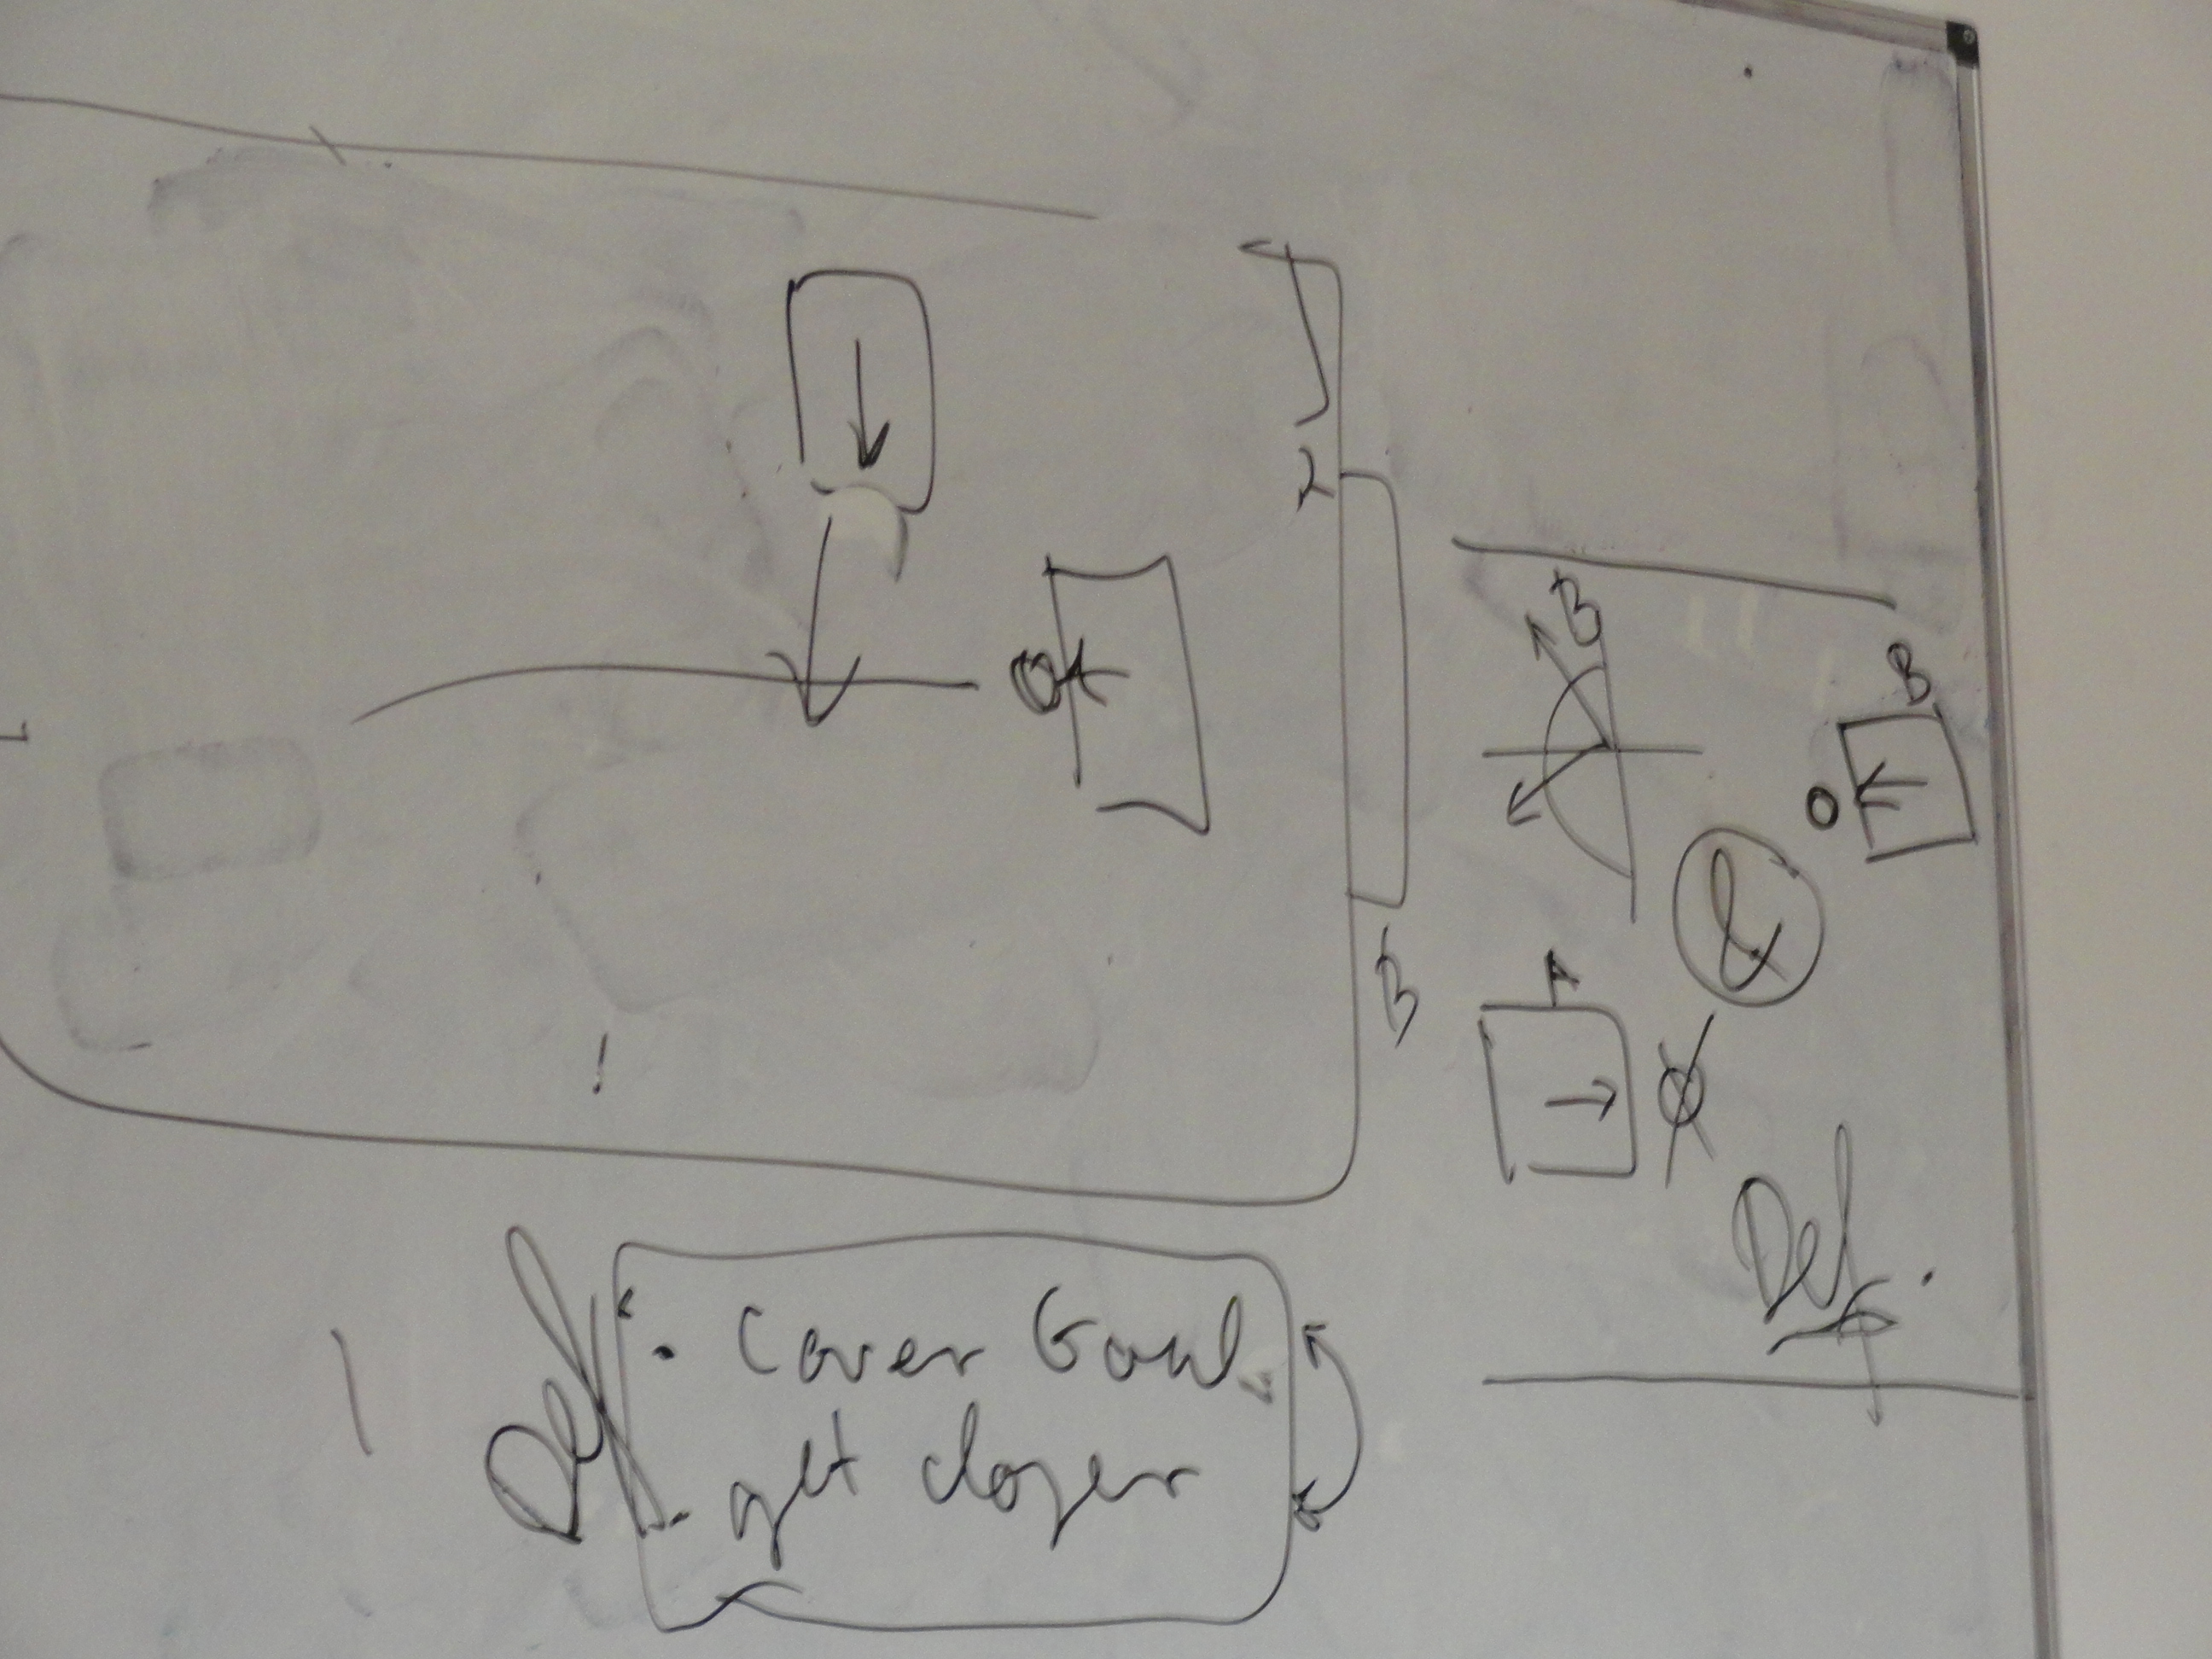 B
B
O
&
A
B
Def.
Def.
. Cover Goal
. get closer